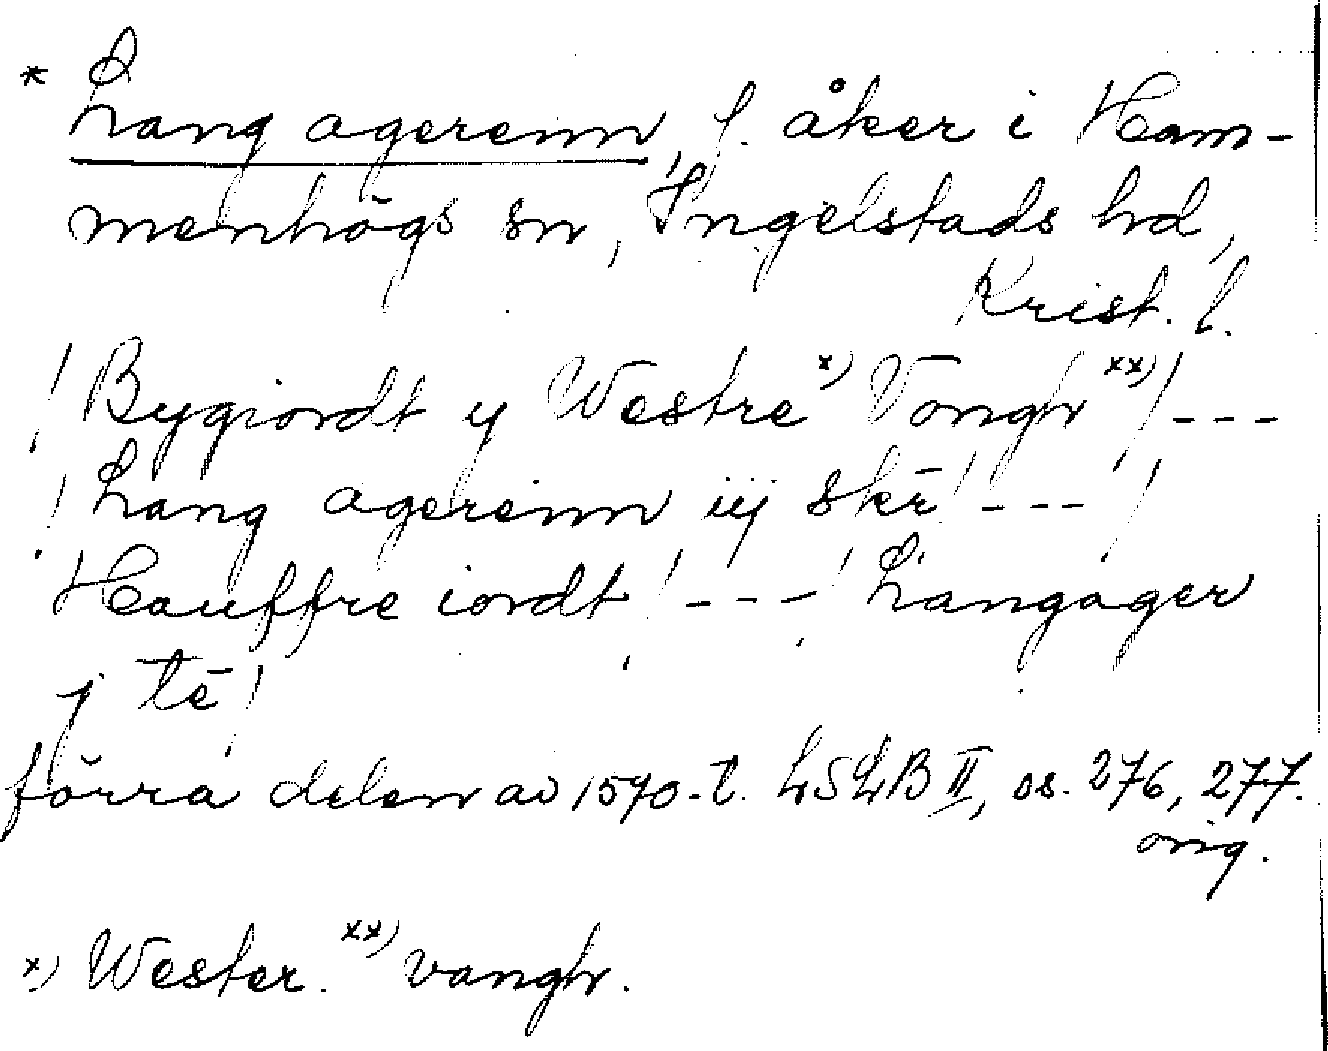 * Lang agerenn, f. åker i Ham-
menhögs sn, Ingelstads hd,
Krist. l.
/ Bygiordt y Westre x) Vongh xx) / ---
/ Lang agerenn iij skē / --- /
Hauffre iordt / --- / Langager
j tē /
förra delen av 1570-t. LSLB II, ss. 276, 277.
orig.
x) Wester. xx) vangh.